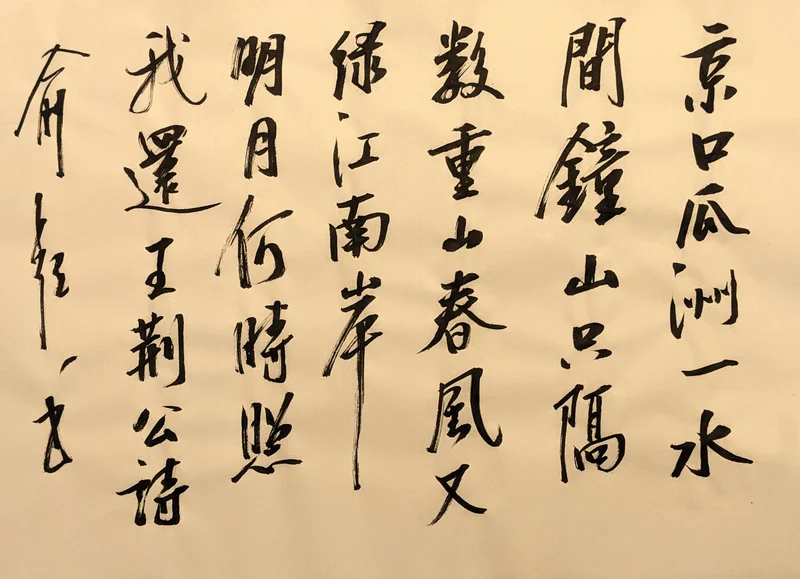 京口瓜洲一水
間鐘山只隔
數重山春風又
綠江南岸
明月何時照
我還王荆公詩
俞